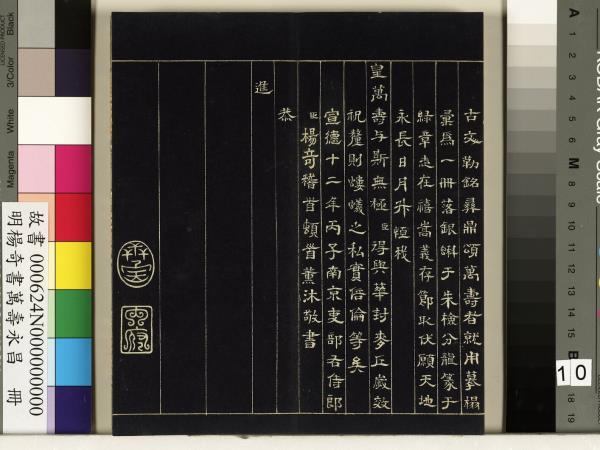 古文勒銘彝鼎頌萬壽者就用摹榻
彙為一冊落銀蝌于朱檢分龍篆于
綠章志在禧嵩義存節耿伏願天地
永長日月升恒我
皇萬壽与斯無極臣得與華封麥丘歲效
祝釐則螻蟻之私實倍倫等矣
宣德十二年丙子南京吏部右侍郎
臣楊奇稽首頓首薰沐敬書
恭
進
故書 000624N000000000
明楊奇書萬壽永昌 冊
10
Black
3/Color
White
Magenta
LICENSED PRODUCT
A
1
2
3
4
5
6
M
8
9
10
11
12
13
14
15
B
17
18
19